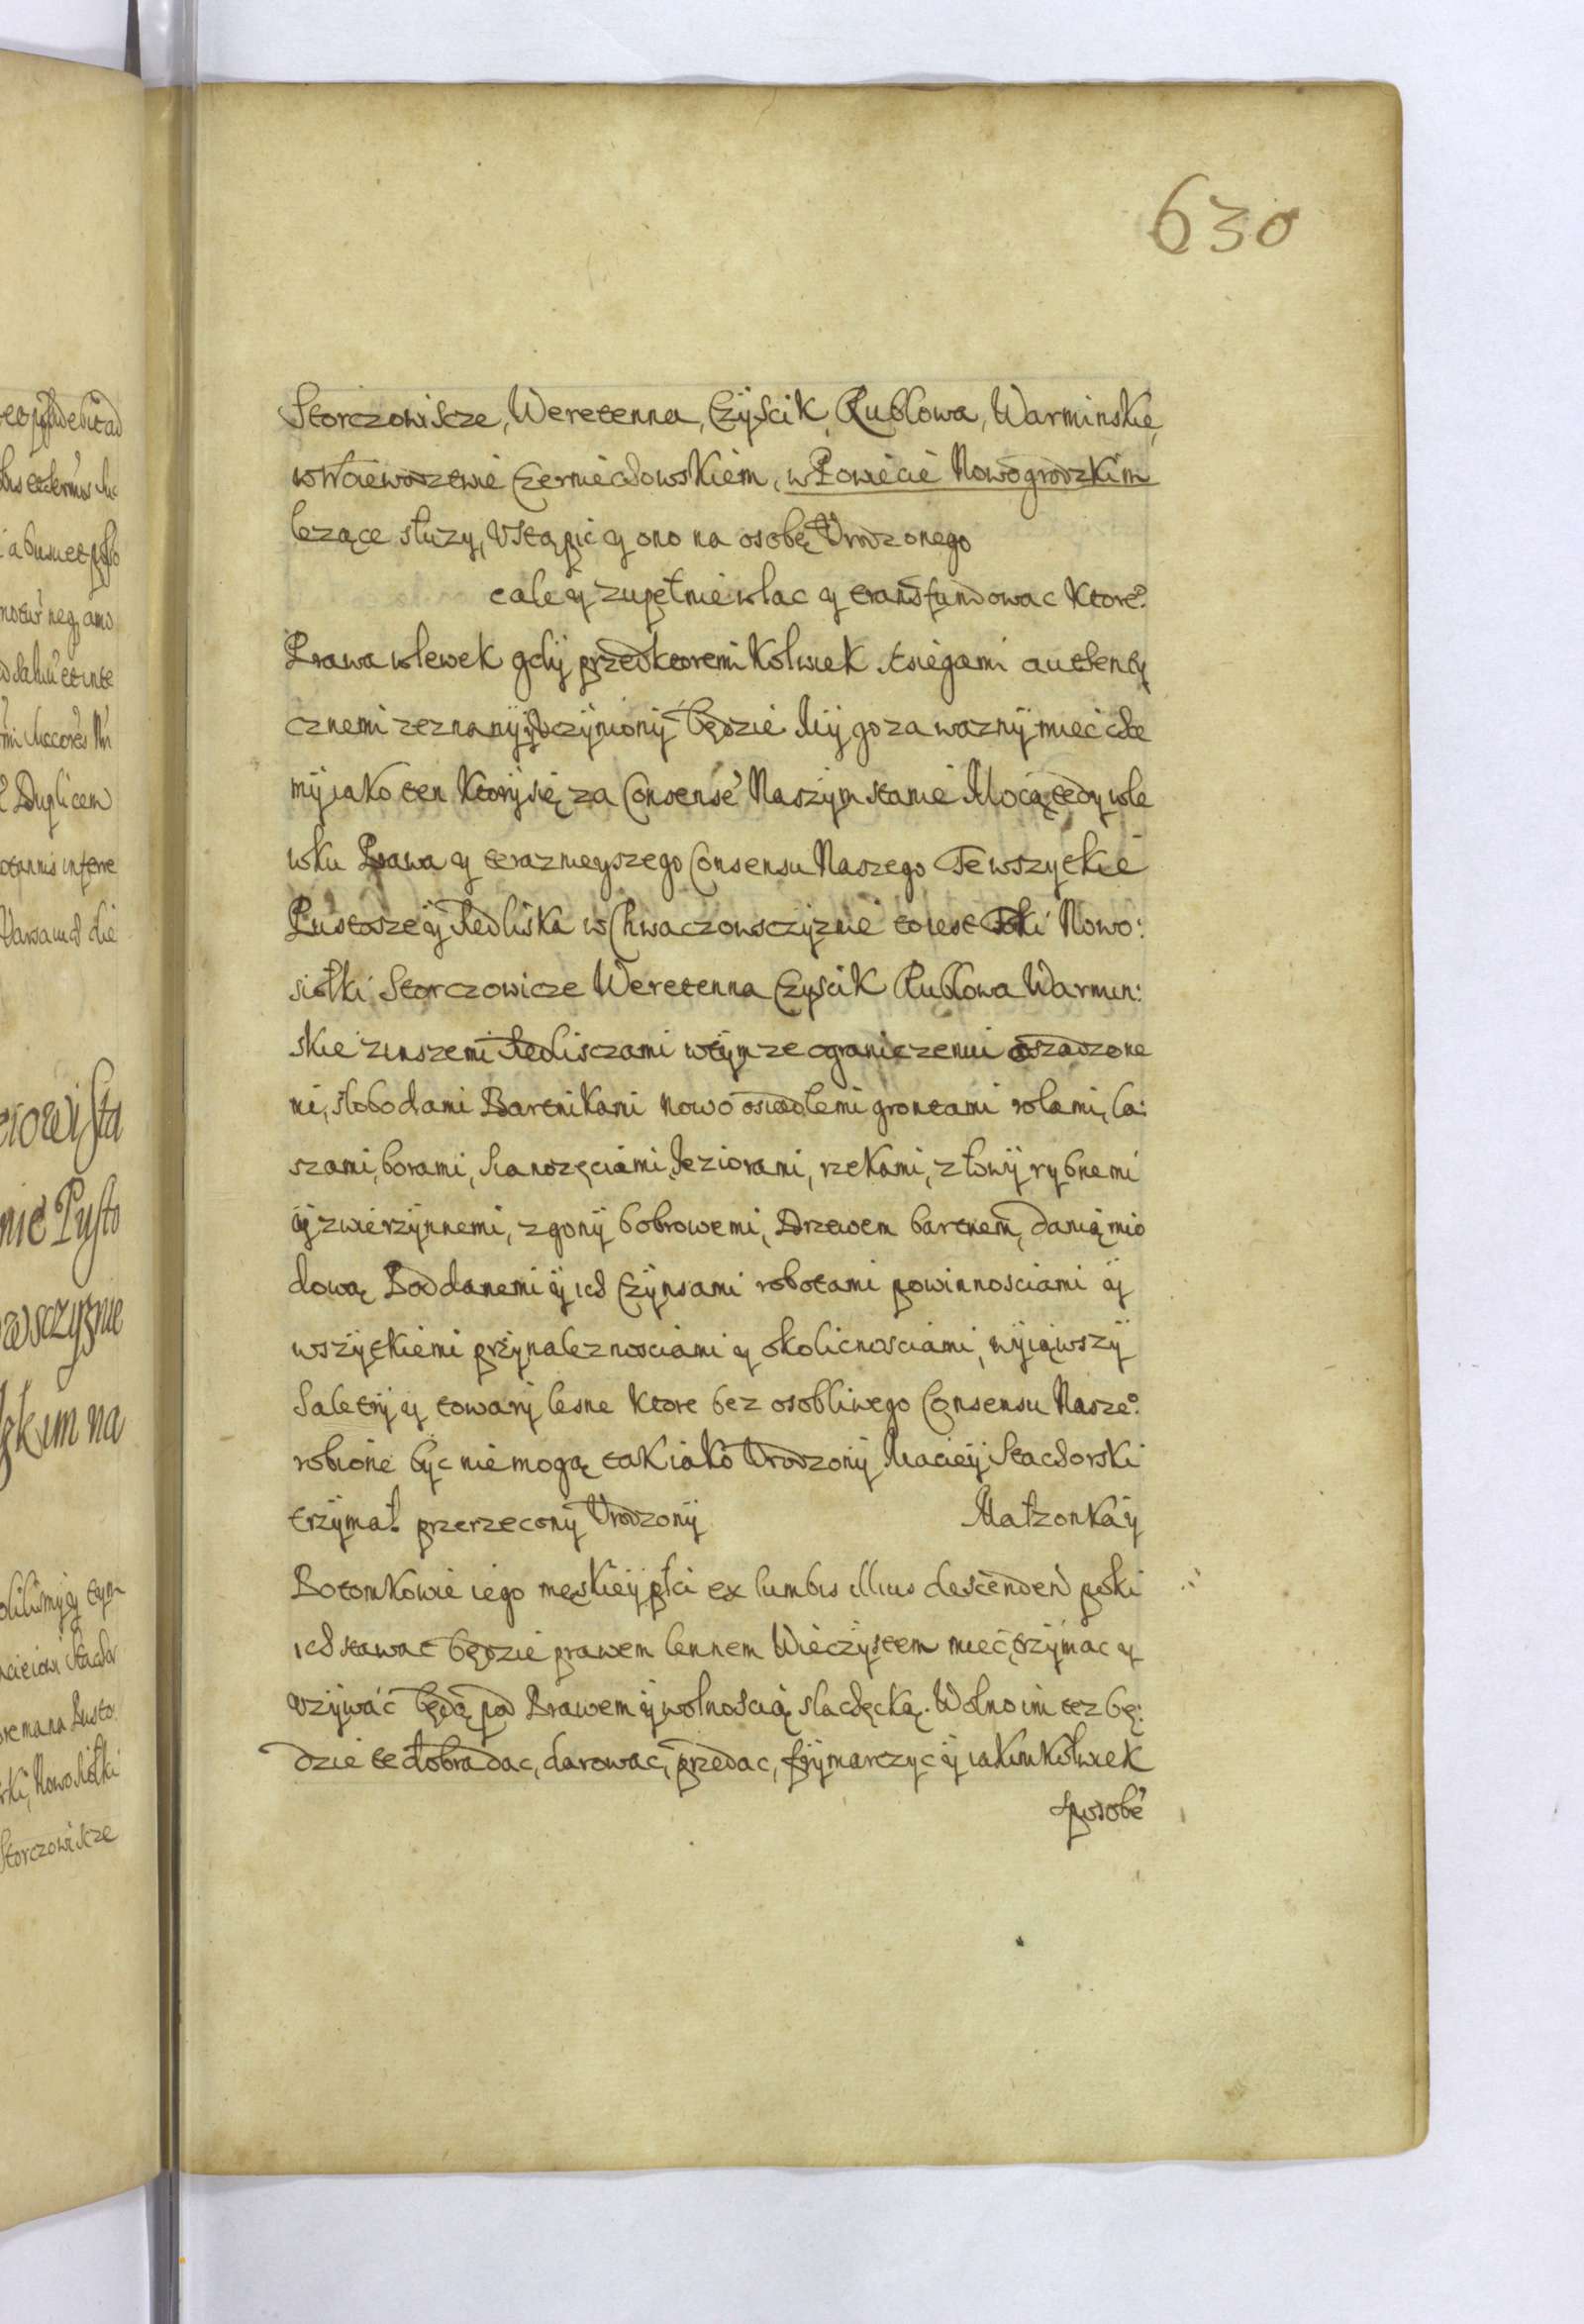 630
Storczowiscze, Weretenna, Czyścik, Rubłowa, Warminskie,
w Woiewodztwie Czerniechowskiem, w Powiecie Nowogrodzkim
lezące słuzy, Vstąpic y ono na osobę Vrodzonego
cale y zupełnie wlac y transfundowac Ktore°
Prawa wlewek gdy przed ktoremi Kolwiek xsięgami autenty
cznemi zeznany y vczyniony będzie My go za wazny miec chce
my iako ten Ktory się za Consensē Naszym stanie Mocą tedy wle
wku Prawa y teraznieyszego Consensu Naszego Te wszytkie
Pustosze y Siedliska w Chwaczowsczyznie to iest Nowo:
siołki Storczowicze Weretenna Czyścik Rubłowa Warmin:
skie z inszemi Siedlisczami w tymze ograniczeniu oszadzone
mi, słobodami Bartnikami nowo osiadłemi grontami rolami, la:
szami, borami, Sianozęciami, Jeziorami, rzekami, z łowy rybnemi
y zwierzynnemi, z gony bobrowemi, Drzewem bartnem, danią mio
dową Poddanemi y ich Czynsami robotami powinnosciami y
wszytkiemi przynaleznosciami y okolicnosciami, wyiąwszy
Saletry y towary lesne Ktore bez osobliwego Consensu Nasze°
robione byc nie mogą tak iako Vrodzony Maciey Stachorski
trzymał przerzecony Vrodzony Małzonka y
Potomkowie iego męskiey płci ex lumbis illius descenden poki
ich stawac będzie prawem lennem Wieczystem miec, trzymac y
vzywać będą pod Prawem y wolnoscią slachęcką. Wolno im tez bę:
dzie te dobra dac, darowac, przedac, frymarczyc y iakimkolwiek
sposobē